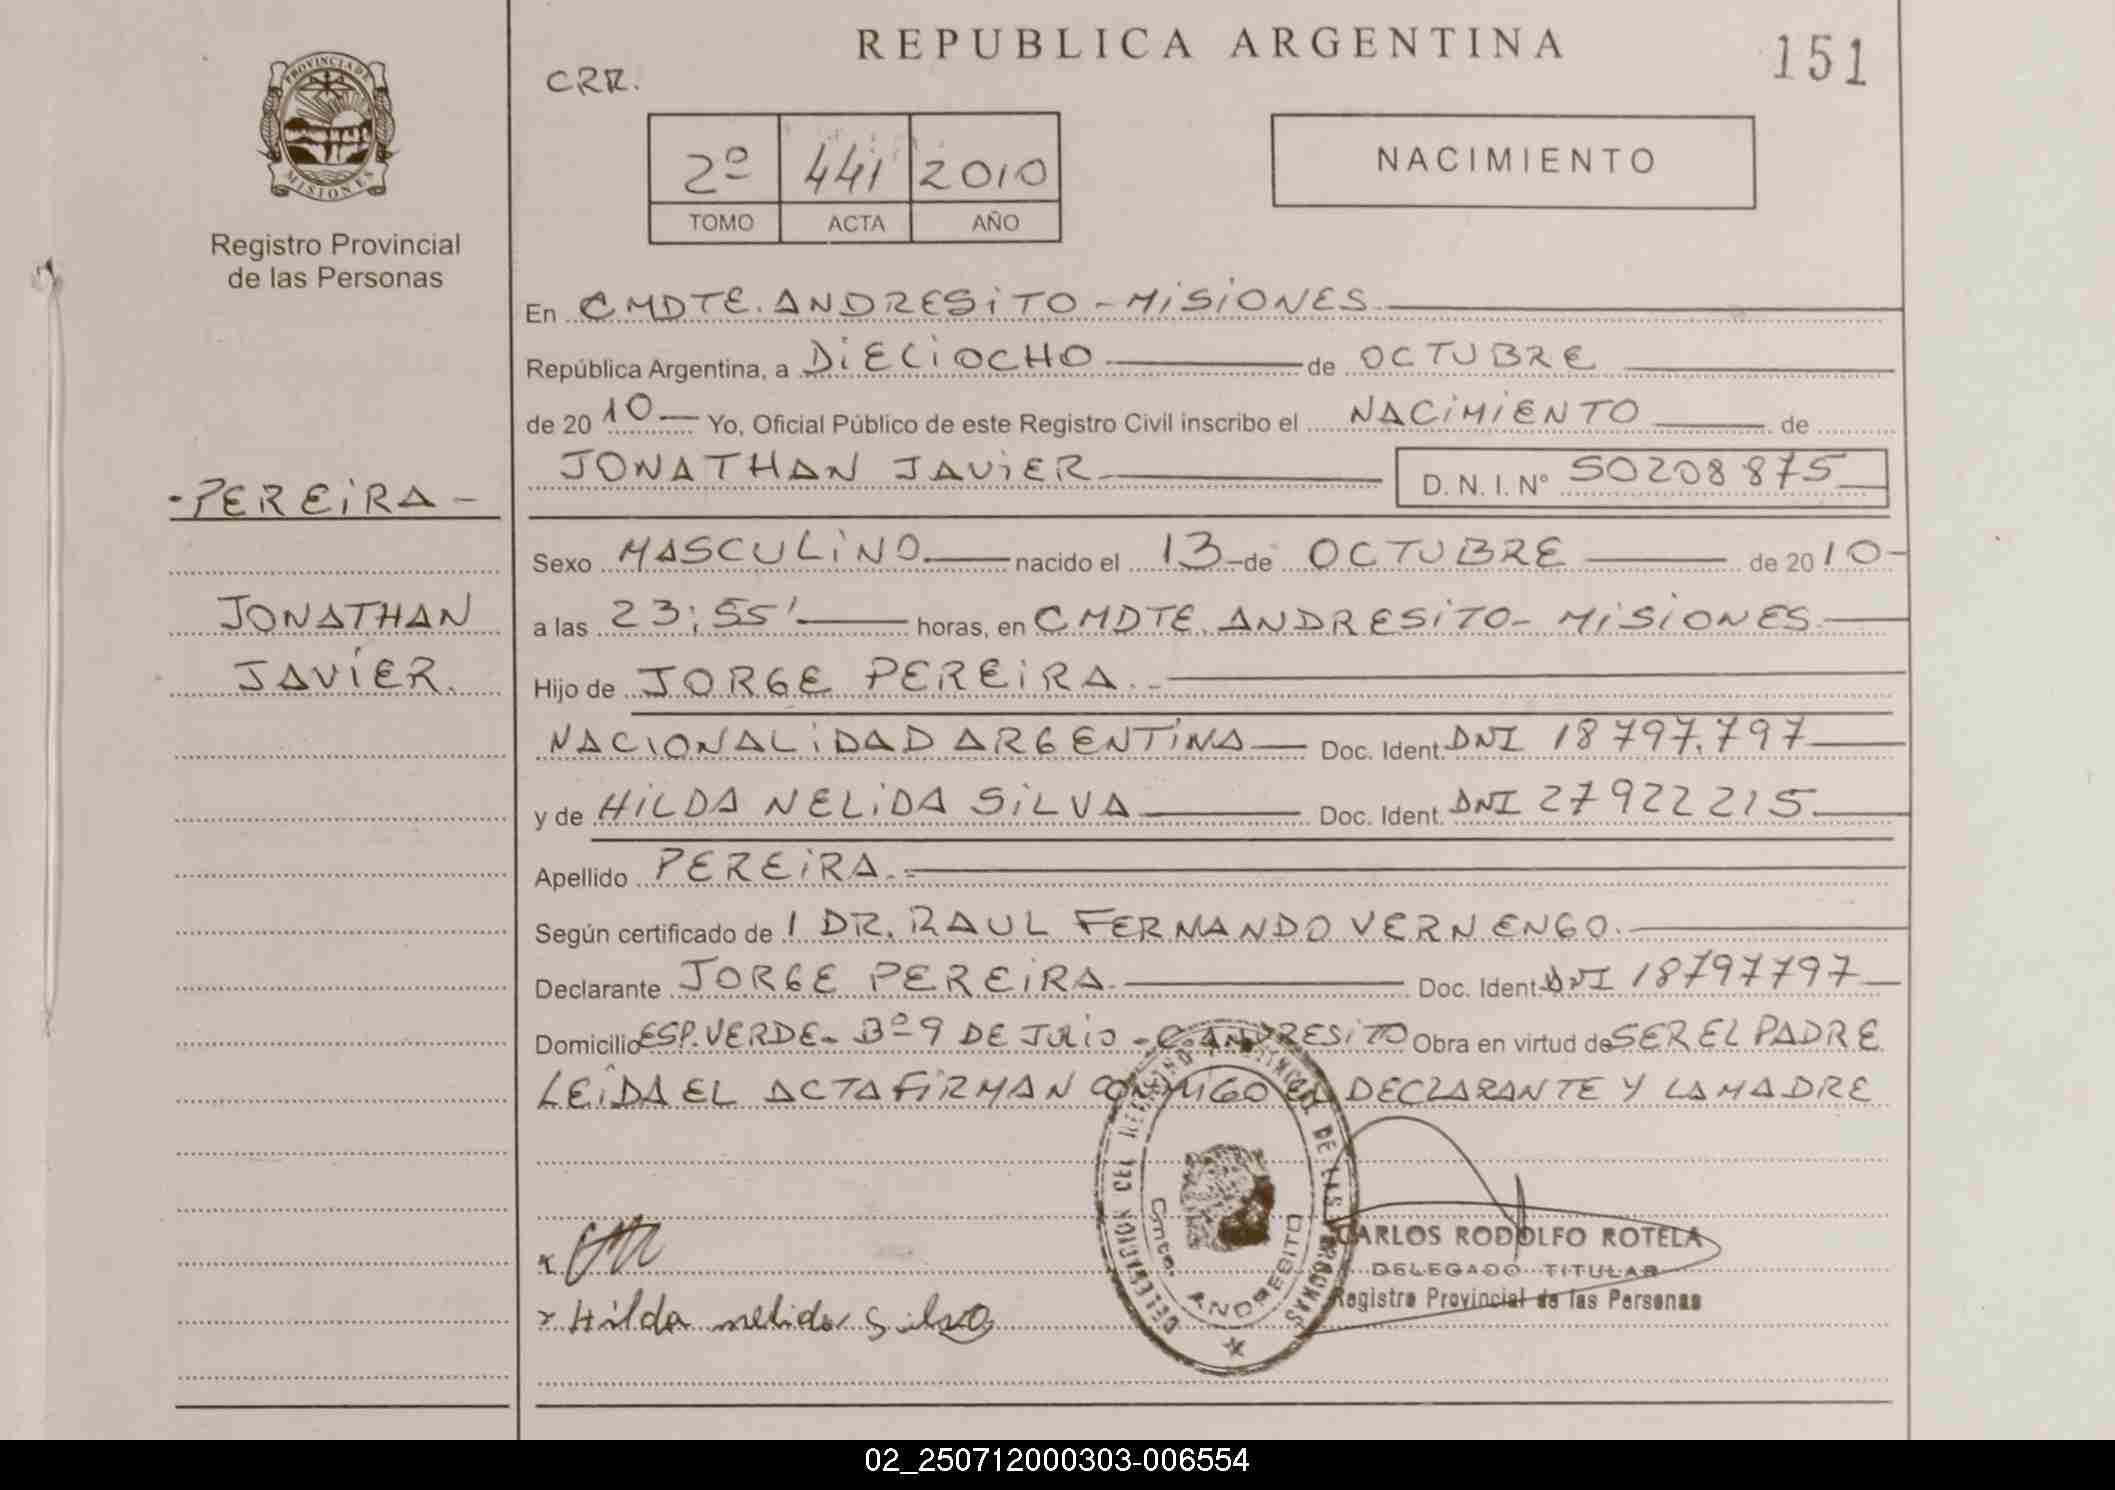 REPUBLICA ARGENTINA
151
CRR.
PROVINCIA DE
MISIONES
Registro Provincial
de las Personas
2º 441 2010
TOMO ACTA AÑO
NACIMIENTO
En CMDTE. ANDRESITO - MISIONES
República Argentina, a DIECIOCHO de OCTUBRE
de 2010 Yo, Oficial Público de este Registro Civil inscribo el NACIMIENTO de
JONATHAN JAVIER D. N. I. Nº 50208875
- PEREIRA -
JONATHAN
JAVIER.
Sexo MASCULINO nacido el 13 de OCTUBRE de 2010
a las 23:55' horas, en CMDTE. ANDRESITO - MISIONES
Hijo de JORGE PEREIRA.
NACIONALIDAD ARGENTINA Doc. Ident. DNI 18797.797
y de HILDA NELIDA SILVA Doc. Ident. DNI 27922215
Apellido PEREIRA.
Según certificado de 1 DR. RAUL FERNANDO VERNENGO.
Declarante JORGE PEREIRA. Doc. Ident. DNI 18797797
Domicilio ESP. VERDE - Bº 9 DE JULIO - C. ANDRESITO Obra en virtud de SER EL PADRE
LEIDA EL ACTA FIRMAN CONMIGO EL DECLARANTE Y LA MADRE
DELEGACION DEL REGISTRO PROVINCIAL DE LAS PERSONAS
Cmte. ANDRESITO
CARLOS RODOLFO ROTELA
DELEGADO TITULAR
Registro Provincial de las Personas
Hilda nelida Silva
02_250712000303-006554